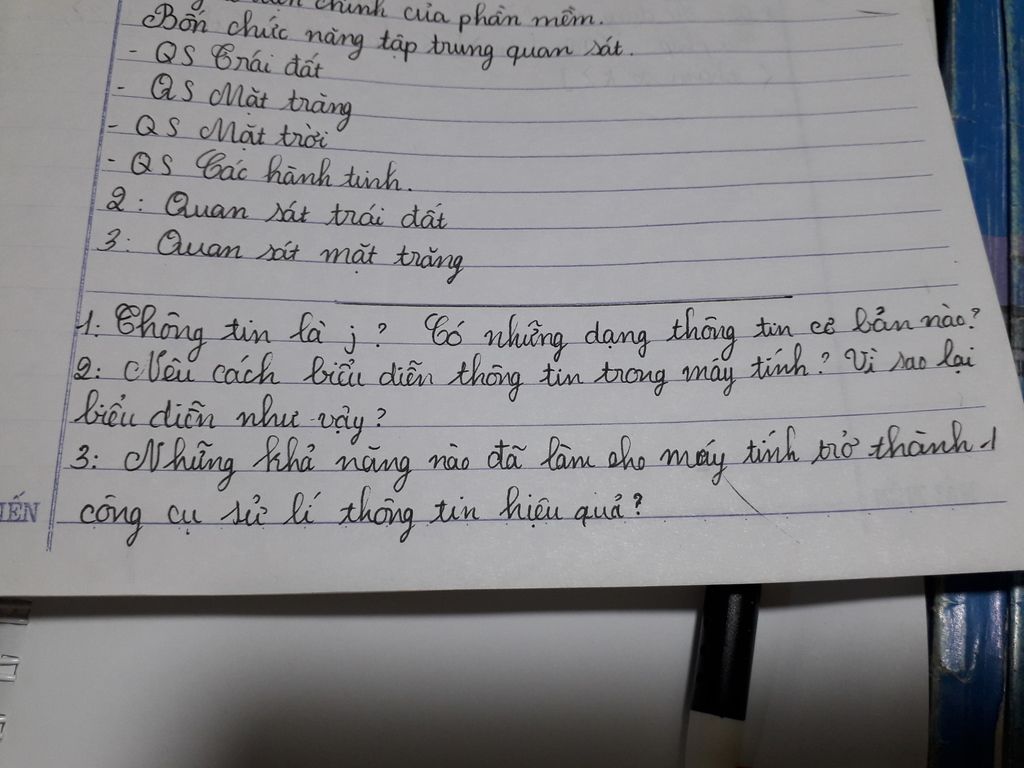 chính của phần mềm.
Bốn chức năng tập trung quan sát.
- QS Trái đất
- QS Mặt trăng
- QS Mặt trời
- QS Các hành tinh.
2: Quan sát trái đất
3: Quan sát mặt trăng
1: Thông tin là j? Có những dạng thông tin cơ bản nào?
2: Nêu cách biểu diễn thông tin trong máy tính? Vì sao lại
biểu diễn như vậy?
3: Những khả năng nào đã làm cho máy tính trở thành 1
công cụ sử lí thông tin hiệu quả?
IẾN